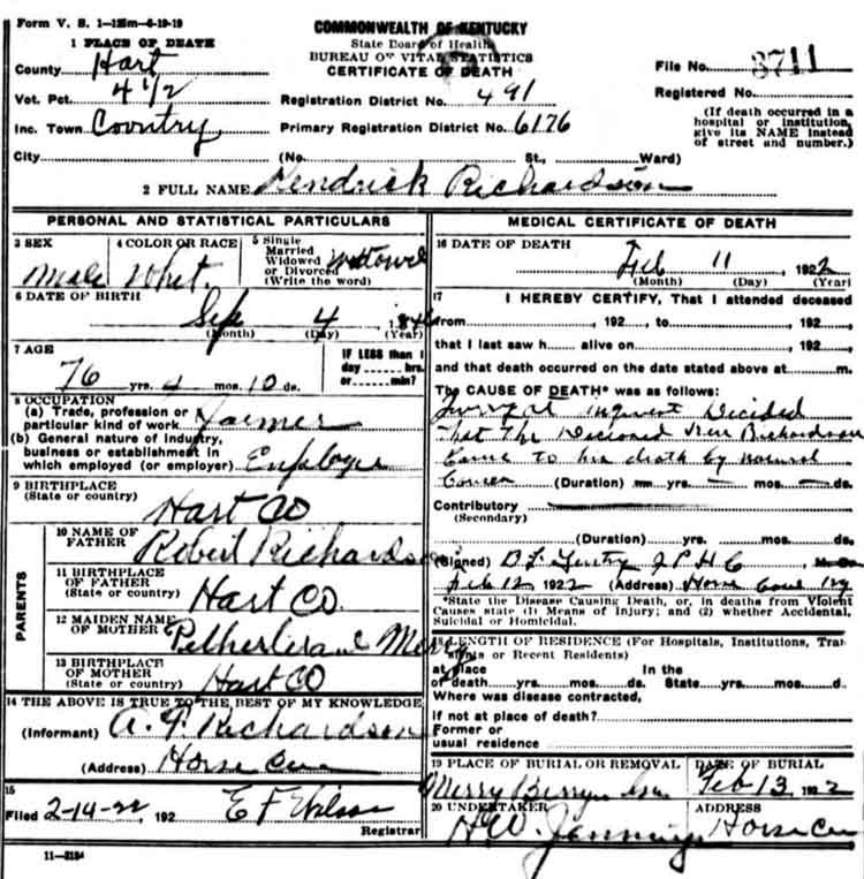 Form V. S. 1-125m-6-19-19
COMMONWEALTH OF KENTUCKY
State Board of Health
BUREAU OF VITAL STATISTICS
CERTIFICATE OF DEATH
1 PLACE OF DEATH
County Hart
Vot. Pct. 4 1/2
Inc. Town Country
City
Registration District No. 491
Primary Registration District No. 6176
(No. St., Ward)
File No. 3711
Registered No.
(If death occurred in a
hospital or institution,
give its NAME instead
of street and number.)
2 FULL NAME Kendrick Richardson
PERSONAL AND STATISTICAL PARTICULARS
3 SEX
Male
4 COLOR OR RACE
Whit.
5 Single
Married
Widowed
or Divorced
(Write the word)
6 DATE OF BIRTH
Sep 4
(Month) (Day) (Year)
7 AGE
76 yrs. 4 mos. 10 ds.
IF LESS than 1
day hrs.
or min?
8 OCCUPATION
(a) Trade, profession or
particular kind of work Farmer
(b) General nature of industry,
business or establishment in
which employed (or employer) Employer
9 BIRTHPLACE
(State or country)
Hart CO
PARENTS
10 NAME OF
FATHER
Robert Richardson
11 BIRTHPLACE
OF FATHER
(State or country)
Hart CO.
12 MAIDEN NAME
OF MOTHER
13 BIRTHPLACE
OF MOTHER
(State or country)
Hart CO
14 THE ABOVE IS TRUE TO THE BEST OF MY KNOWLEDGE
(Informant) Richardson
(Address) Horse Cave
15
Filed 2-14-22, 192 E F Wilson
Registrar
11-3184
MEDICAL CERTIFICATE OF DEATH
16 DATE OF DEATH
Feb 11, 1922
(Month) (Day) (Year)
17 I HEREBY CERTIFY, That I attended deceased
from , 192 , to , 192 ,
that I last saw h alive on , 192 ,
and that death occurred on the date stated above at m.
The CAUSE OF DEATH* was as follows:
inquest Decided
That The Richardson
Came to his death by natural
(Duration) yrs. mos. ds.
Contributory
(Secondary)
(Duration) yrs. mos. ds.
(Signed) Gentry J P H C
Feb 12 1922 (Address) Horse Cave Ky
*State the Disease Causing Death, or, in deaths from Violent
Causes state (1) Means of Injury; and (2) whether Accidental,
Suicidal or Homicidal.
18 LENGTH OF RESIDENCE (For Hospitals, Institutions, Tran-
sients or Recent Residents)
At place
of death yrs. mos. ds. In the State yrs. mos. d
Where was disease contracted,
if not at place of death?
Former or
usual residence
19 PLACE OF BURIAL OR REMOVAL
Merry
DATE OF BURIAL
Feb 13, 1922
20 UNDERTAKER
H W. Jennings
ADDRESS
Horse Cave